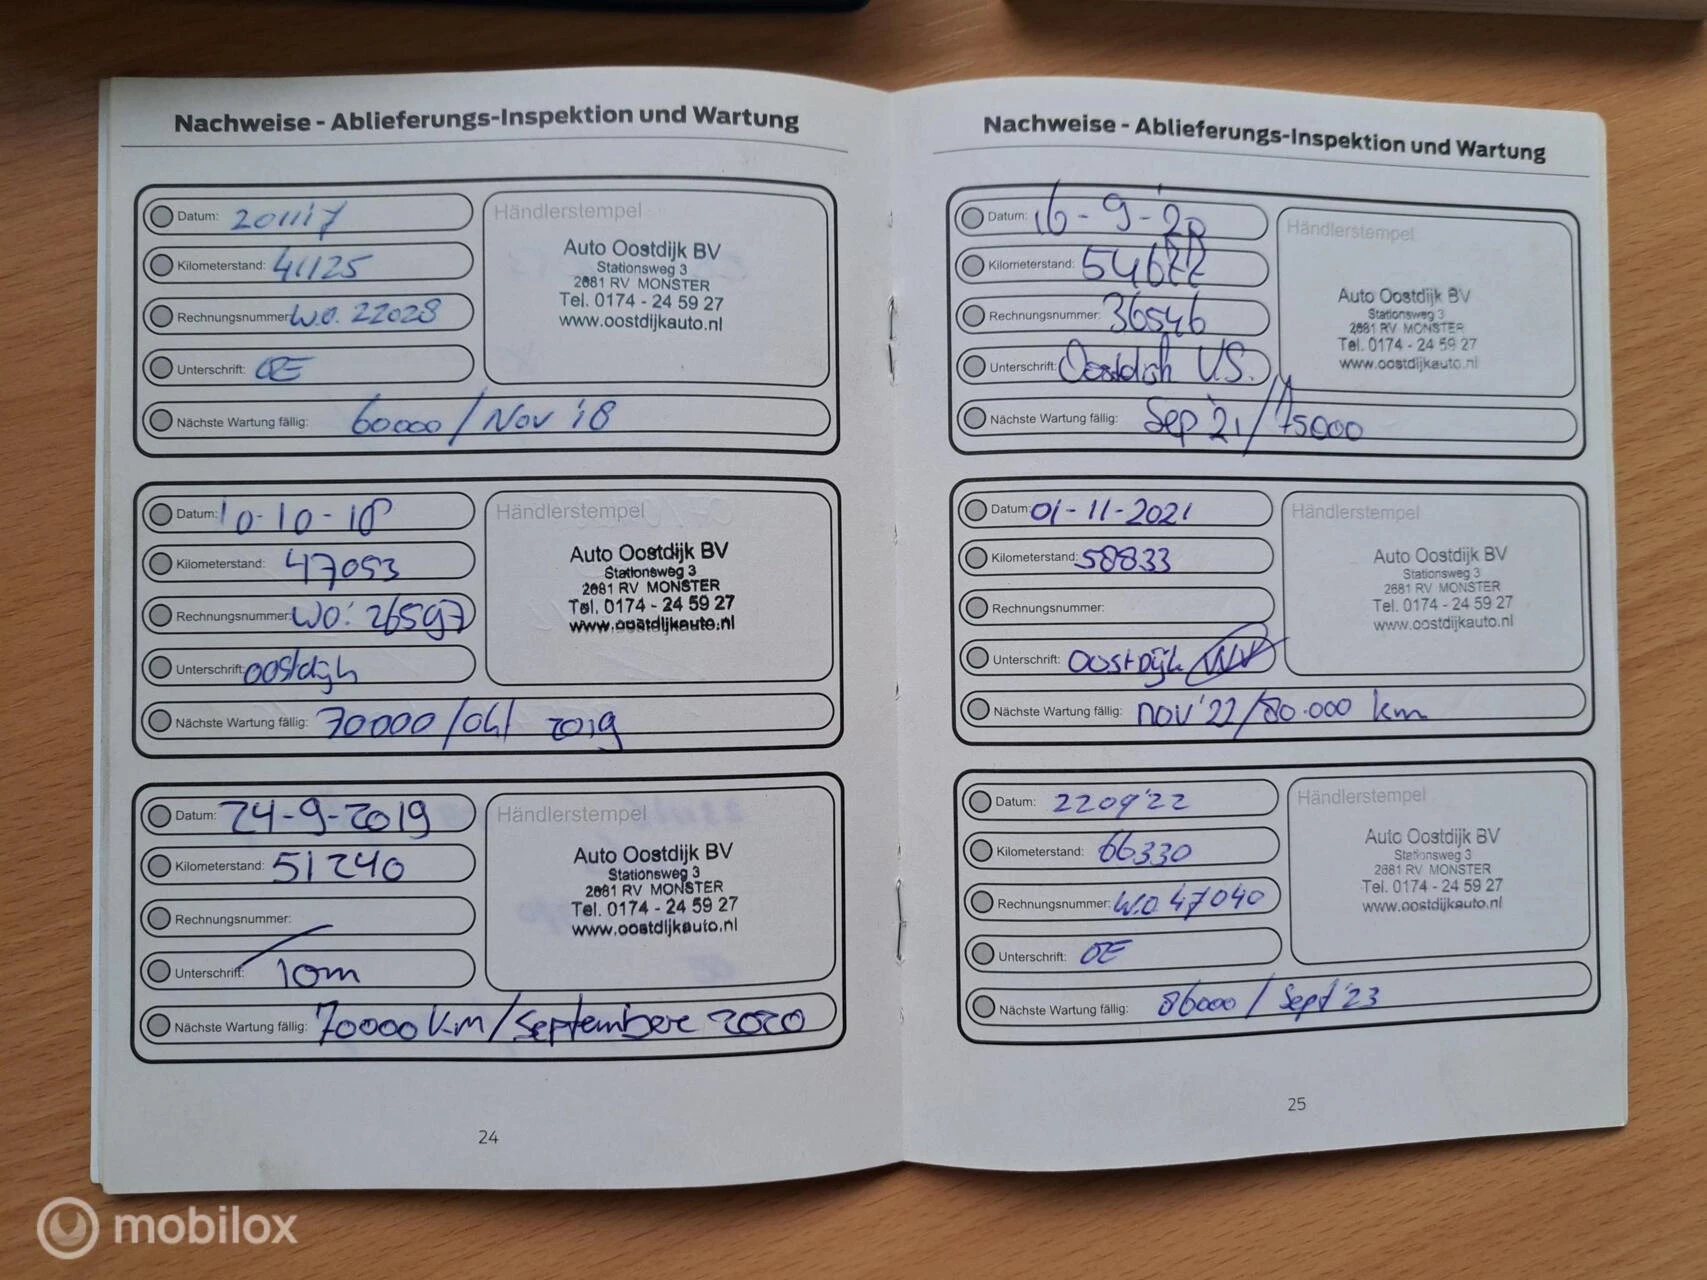 Nachweise - Ablieferungs-Inspektion und Wartung
Datum: 201117
Kilometerstand: 41125
Rechnungsnummer: W.O. 22028
Unterschrift: OE
Nächste Wartung fällig: 60000 / Nov '18
Händlerstempel
Auto Oostdijk BV
Stationsweg 3
2681 RV MONSTER
Tel. 0174 - 24 59 27
www.oostdijkauto.nl
Datum: 10-10-18
Kilometerstand: 47053
Rechnungsnummer: WO: 26597
Unterschrift: oostdijk
Nächste Wartung fällig: 70000 / okt 2019
Händlerstempel
Auto Oostdijk BV
Stationsweg 3
2681 RV MONSTER
Tel. 0174 - 24 59 27
www.oostdijkauto.nl
Datum: 24-9-2019
Kilometerstand: 51240
Rechnungsnummer:
Unterschrift: Tom
Nächste Wartung fällig: 70000 km / septembere 2020
Händlerstempel
Auto Oostdijk BV
Stationsweg 3
2681 RV MONSTER
Tel. 0174 - 24 59 27
www.oostdijkauto.nl
24
Nachweise - Ablieferungs-Inspektion und Wartung
Datum: 16-9-'20
Kilometerstand: 54677
Rechnungsnummer: 36546
Unterschrift: Oostdijk V.S.
Nächste Wartung fällig: Sep '21 / 75000
Händlerstempel
Auto Oostdijk BV
Stationsweg 3
2681 RV MONSTER
Tel. 0174 - 24 59 27
www.oostdijkauto.nl
Datum: 01-11-2021
Kilometerstand: 58833
Rechnungsnummer:
Unterschrift: Oostdijk
Nächste Wartung fällig: nov '22 / 80.000 km
Händlerstempel
Auto Oostdijk BV
Stationsweg 3
2681 RV MONSTER
Tel. 0174 - 24 59 27
www.oostdijkauto.nl
Datum: 2209'22
Kilometerstand: 66330
Rechnungsnummer: W.O. 47040
Unterschrift: OE
Nächste Wartung fällig: 86000 / Sept '23
Händlerstempel
Auto Oostdijk BV
Stationsweg 3
2681 RV MONSTER
Tel. 0174 - 24 59 27
www.oostdijkauto.nl
25
mobilox